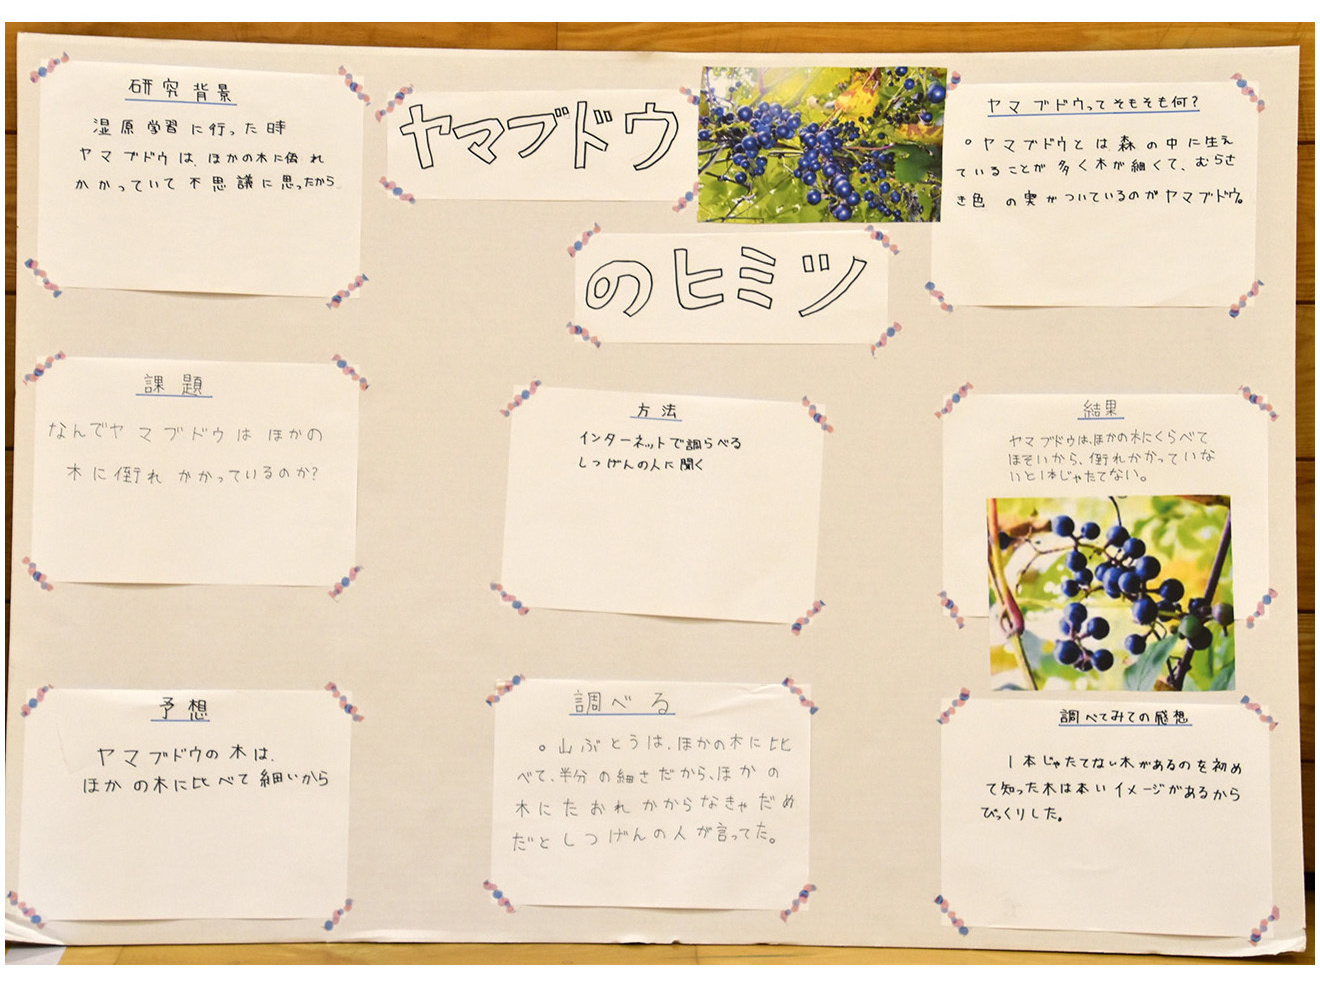 ヤマブドウ
のヒミツ
研究背景
湿原学習に行った時
ヤマブドウは、ほかの木に倒れ
かかっていて不思議に思ったから
課題
なんでヤマブドウはほかの
木に倒れかかっているのか?
予想
ヤマブドウの木は、
ほかの木に比べて細いから
方法
インターネットで調らべる
しつげんの人に聞く
調べる
○山ぶとうは、ほかの木に比
べて、半分の細さだから、ほかの
木にたおれかからなきゃだめ
だとしつげんの人が言ってた。
ヤマブドウってそもそも何?
○ヤマブドウとは森の中に生え
ていることが多く木が細くて、むらさ
き色の実がついているのがヤマブドウ。
結果
ヤマブドウは、ほかの木にくらべて
ほそいから、倒れかかっていな
いと1本じゃたてない。
調べてみての感想
1本じゃたてない木があるのを初め
て知った木は本いイメージがあるから
びっくりした。